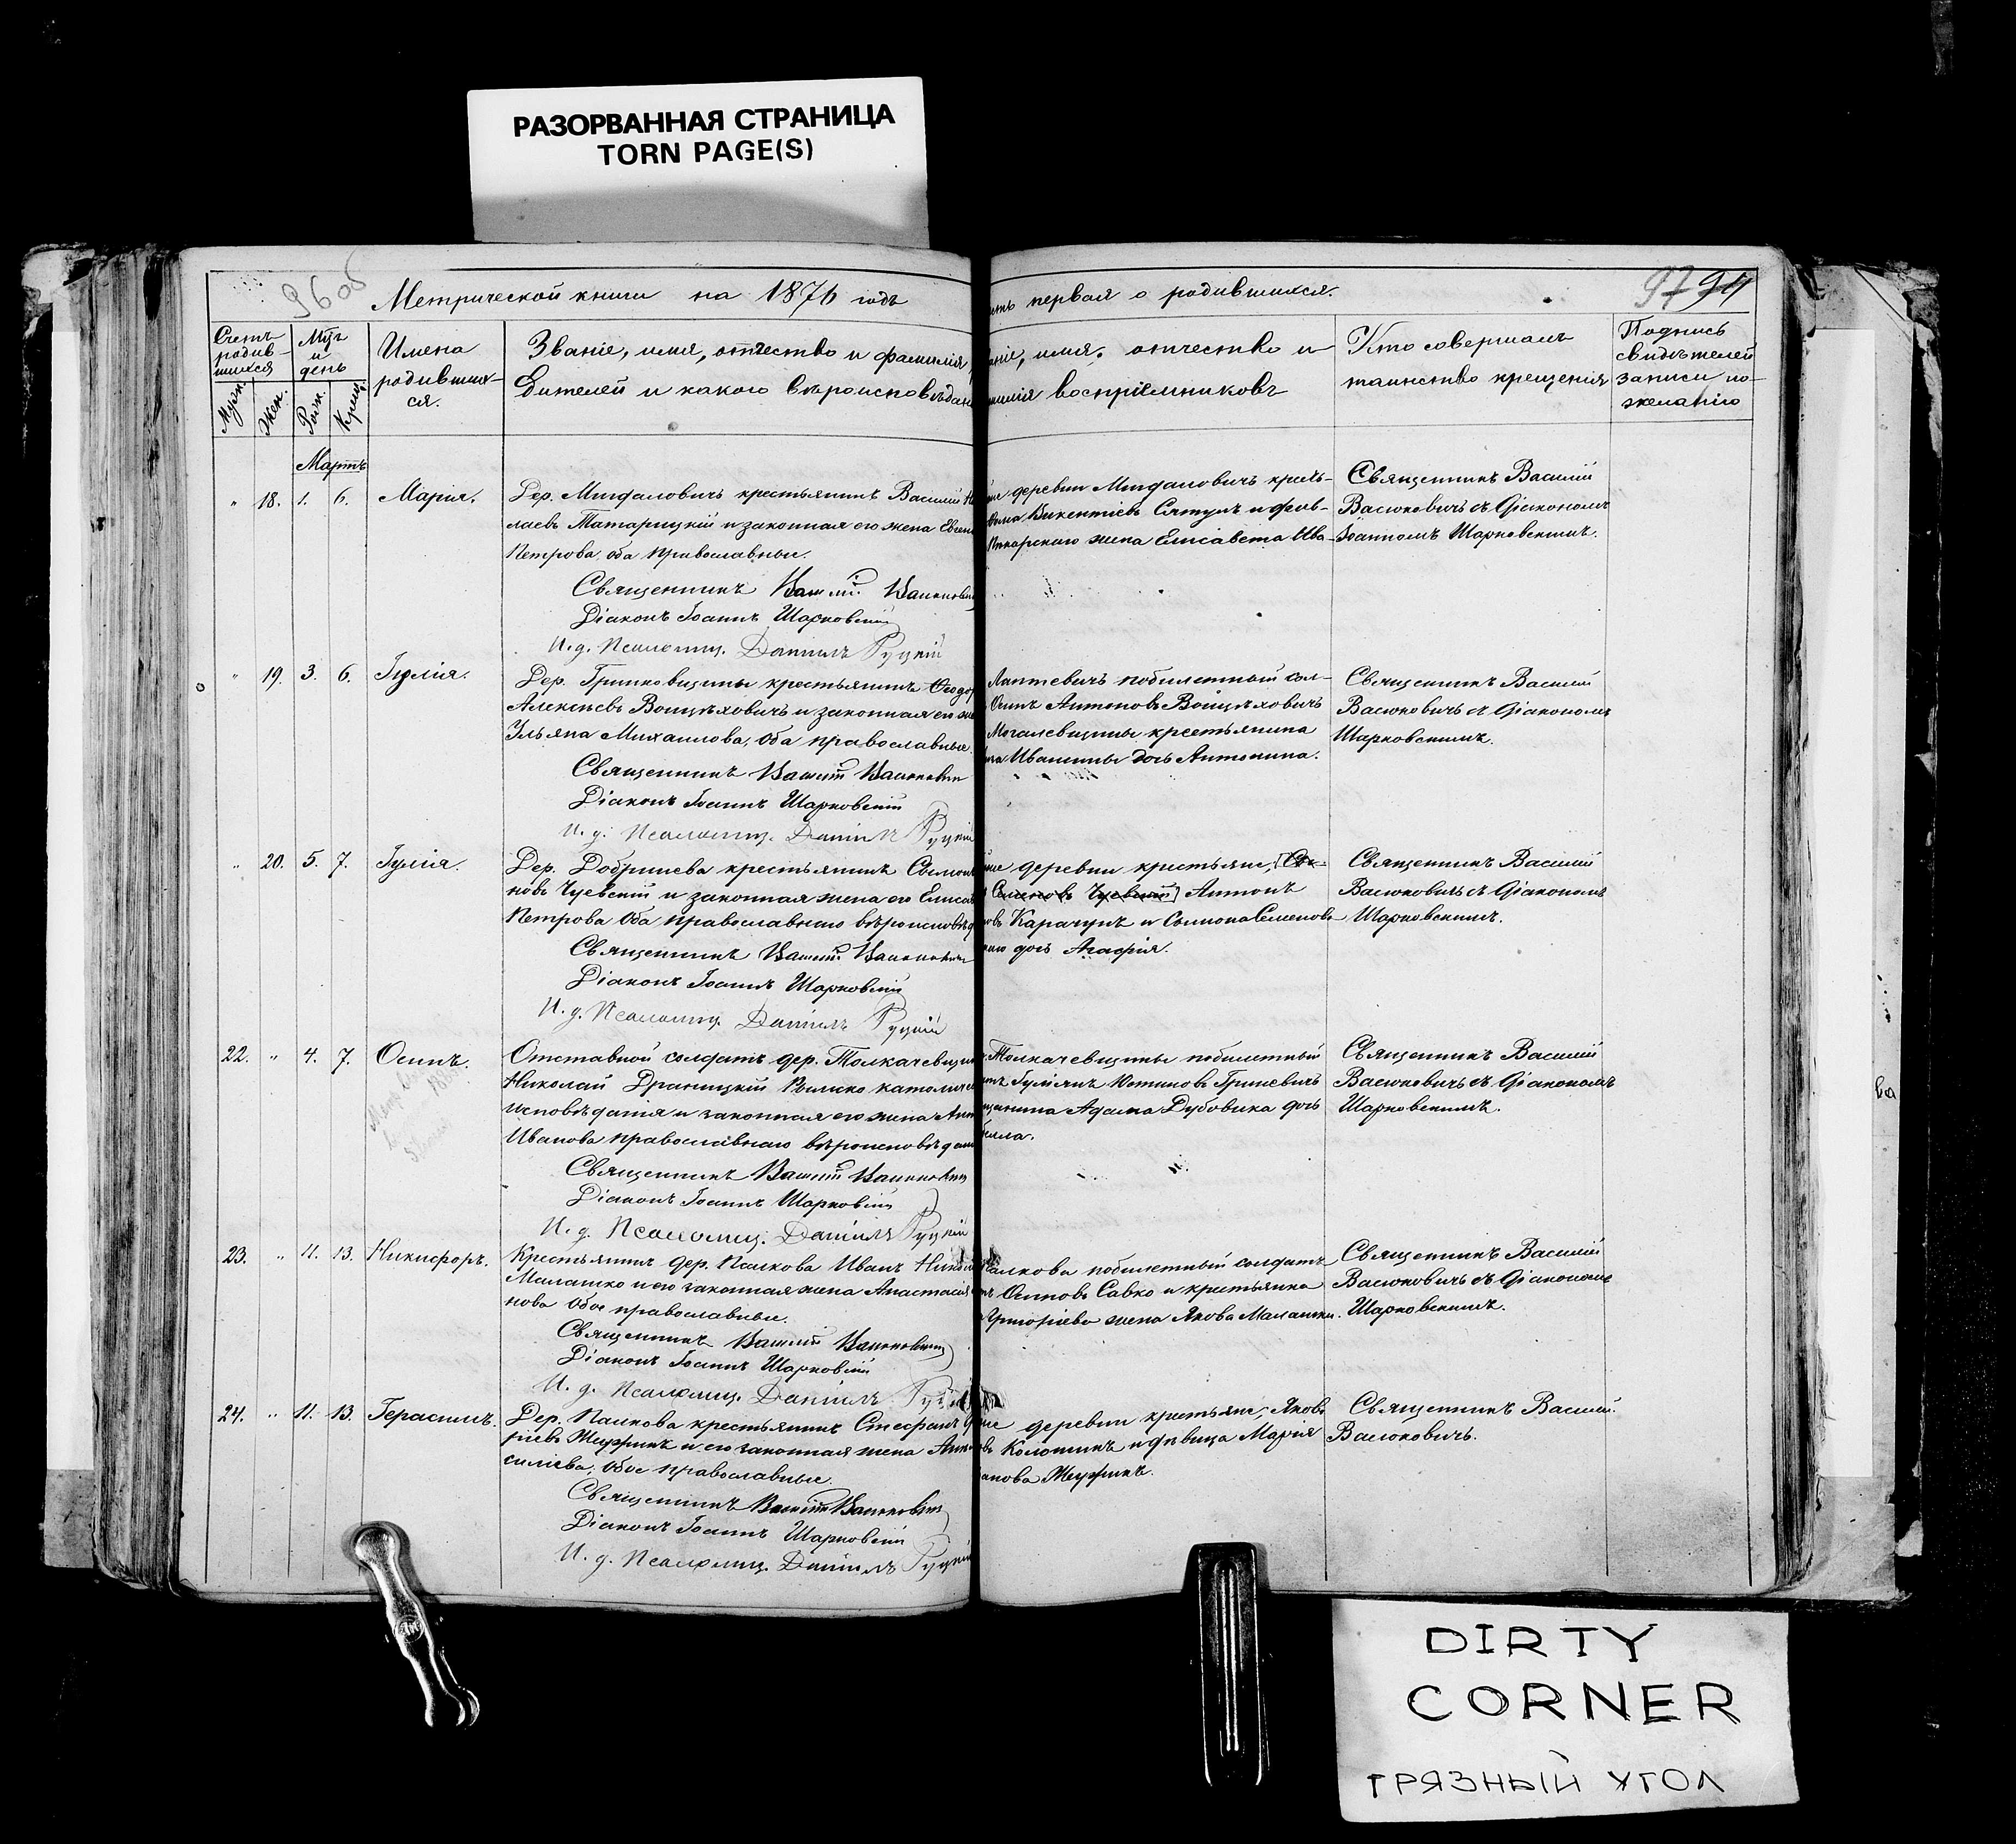 РАЗОРВАННАЯ СТРАНИЦА
TORN PAGE(S)
Метрической книги на 1876 годъ
первая о родившихся.
97 94
Счетъ родив-шихся
Муж.
Жен.
Мѣц. и день
Рож.
Крещ.
Имена родивших-ся.
Званіе, имя, отчество и фамилія
дителей и какого вѣроисповѣдан
аніе, имя, отчество и
милія воспріемниковъ
Кто совершалъ
таинство крещенія
Подпись
свидѣтелей
записи по-
желанію
Мартъ
" 18. 1. 6. Марія.
Дер. Мигдаловичъ крестьянинъ Василій Ни
лаевъ Татарицкій и законная его жена Евген
Петрова, оба православные.
Священникъ Василій Васюкович
Діаконъ Іоаннъ Шарковскій
И. д. Псаломщ. Даніилъ Руцкій
деревни Мигдаловичъ кресть-
Викентіевъ Сятулъ и
жена Елисавета Ива-
Священникъ Василій
Васюковичъ съ Діакономъ
Іоанномъ Шарковскимъ.
" 19. 3. 6. Іулія.
Дер. Гринковщины крестьянинъ Ѳеодо
Алексѣевъ Войцѣховичъ и законная его же
Ульяна Михаилова, оба православные.
Священникъ Василій Васюкович
Діаконъ Іоаннъ Шарковскій
И. д. Псаломщ. Даніилъ Руцкій
Лаптевичъ побилетный сол-
Осипъ Антоновъ Войцѣховичъ
Могалевщины крестьянина
на Ивашины дочь Антонина.
Священникъ Василій
Васюковичъ съ Діакономъ
Шарковскимъ.
" 20. 5. 7. Іулія.
Дер. Добринева крестьянинъ Сѵмеон
новъ Чуевскій и законная жена его Елиса
Петрова оба православнаго вѣроисповѣд
Священникъ Василій Васюкович
Діаконъ Іоаннъ Шарковскій
И. д. Псаломщ. Даніилъ Руцкій
деревни крестьяне,
Семеновъ Чуевскій Антонъ
овъ Карачунъ и Сѵмеона Семенова
дочь Агафія.
Священникъ Василій
Васюковичъ съ Діакономъ
Шарковскимъ.
22. " 4. 7. Осипъ.
Отставной солдатъ дер. Толкачевщин
Николай Драницкій Римско католичес
исповѣданія и законная его жена Анн
Иванова православнаго вѣроисповѣдан
Священникъ Василій Васюкович
Діаконъ Іоаннъ Шарковскій
И. д. Псаломщ. Даніилъ Руцкій
Толкачевщины побилетный
Іуліанъ Юстиновъ Гриневичъ
щанина Адама Дубовика дочь
Священникъ Василій
Васюковичъ съ Діакономъ
Шарковскимъ.
23. " 11. 13. Никифоръ.
Крестьянинъ дер. Палкова Иванъ Никол
Малашко и его законная жена Анастасія
нова обое православные.
Священникъ Василій Васюкович
Діаконъ Іоаннъ Шарковскій
И. д. Псаломщ. Даніилъ Руцкій
Палкова побилетный солдатъ
Осиповъ Савко и крестьянка
Григоріева жена Якова Малашки.
Священникъ Василій
Васюковичъ съ Діакономъ
Шарковскимъ.
24. " 11. 13. Герасимъ.
Дер. Палкова крестьянинъ Стефанъ
ріевъ Жеуринъ и его законная жена Анн
сильева, обое православные.
Священникъ Василій Васюкович
Діаконъ Іоаннъ Шарковскій
И. д. Псаломщ. Даніилъ Руцкій
деревни крестьяне, Яковъ
Колошинъ и дѣвица Марія
анова Жеуринъ.
Священникъ Василій
Васюковичъ.
DIRTY
CORNER
ГРЯЗНЫЙ УГОЛ